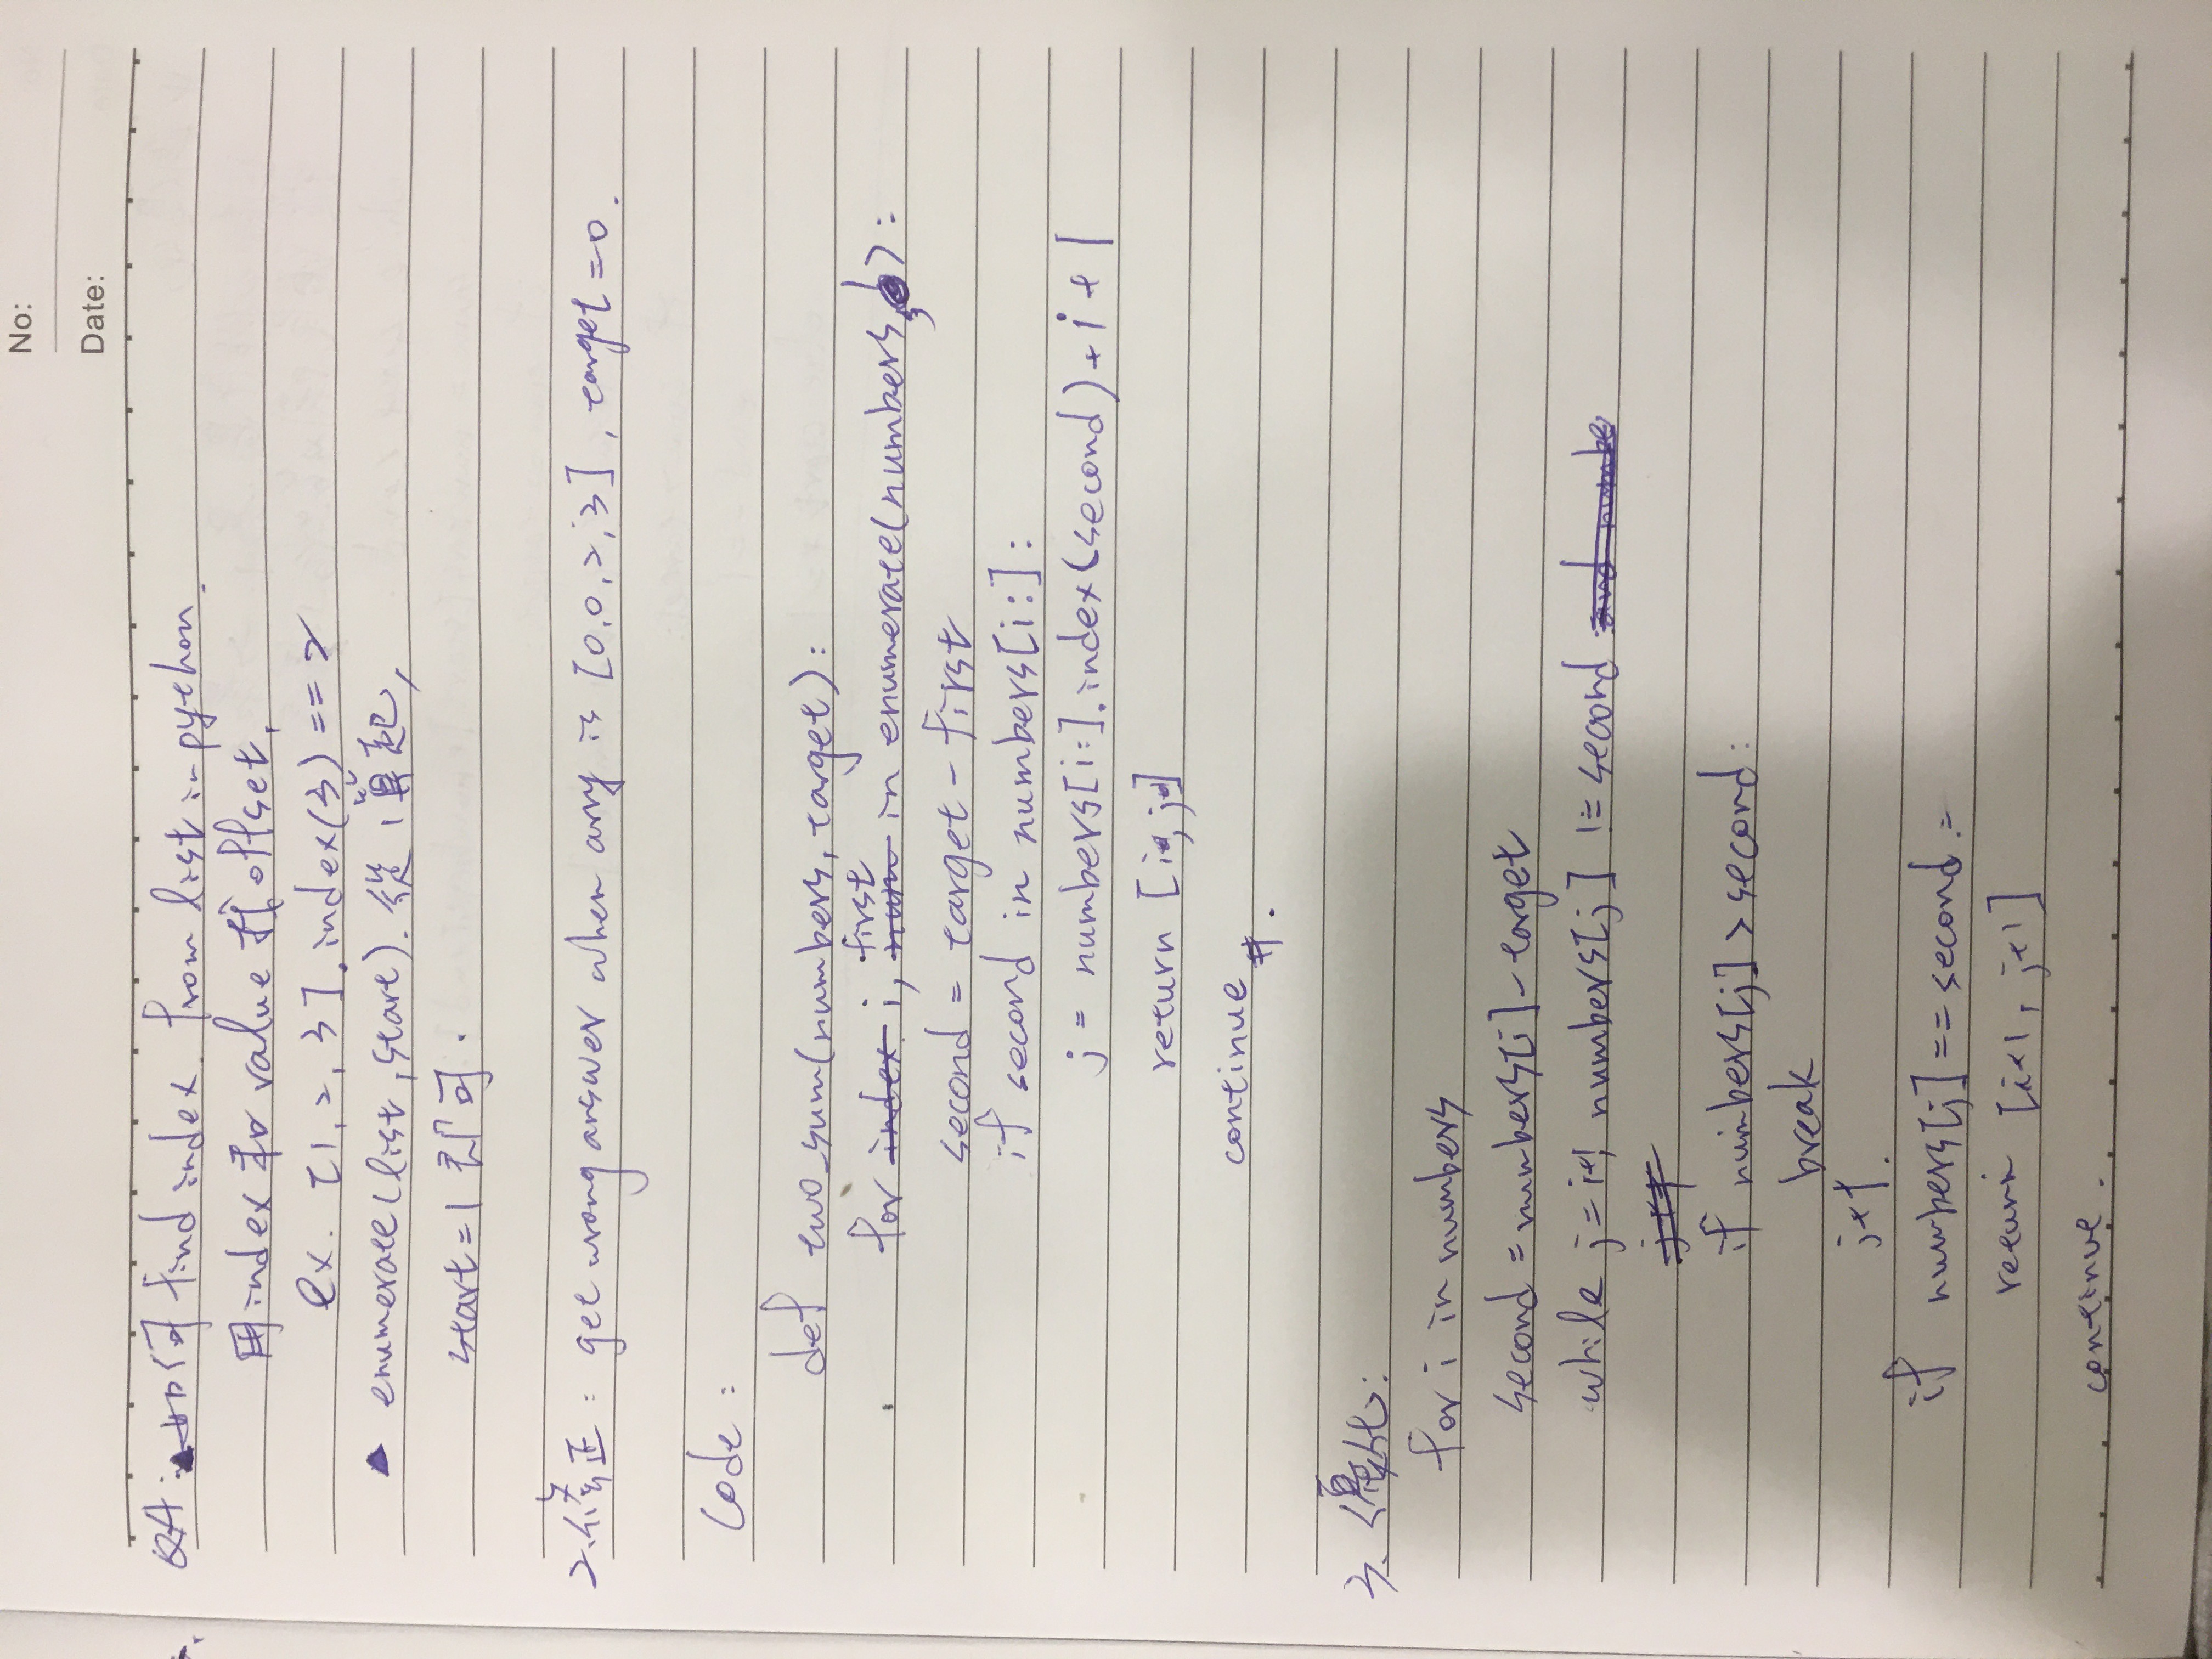 No:
Date:
QA: ▲如何 find index from list in python.
用 index 和 value 找 offset,
ex. [1, 2, 3].index(3) == 2
▲ enumerate(list, start). 從 1 算起,
start=1 即可.
2.修正: get wrong answer when arry is [0,0,2,3], target=0.
Code:
def two_sum(numbers, target):
for index i, first num in enumerate(numbers, 1):
second = target - first
if second in numbers[i:]:
j = numbers[i:].index(second) + i + 1
return [i, j]
continue #.
3. 優化:
for i in numbers
second = numbers[i] - target
while j = i+1, numbers[j] != second and numbe
j+1
if numbers[j] > second:
break
j+1.
if numbers[j] == second:
return [i+1, j+1]
continue.